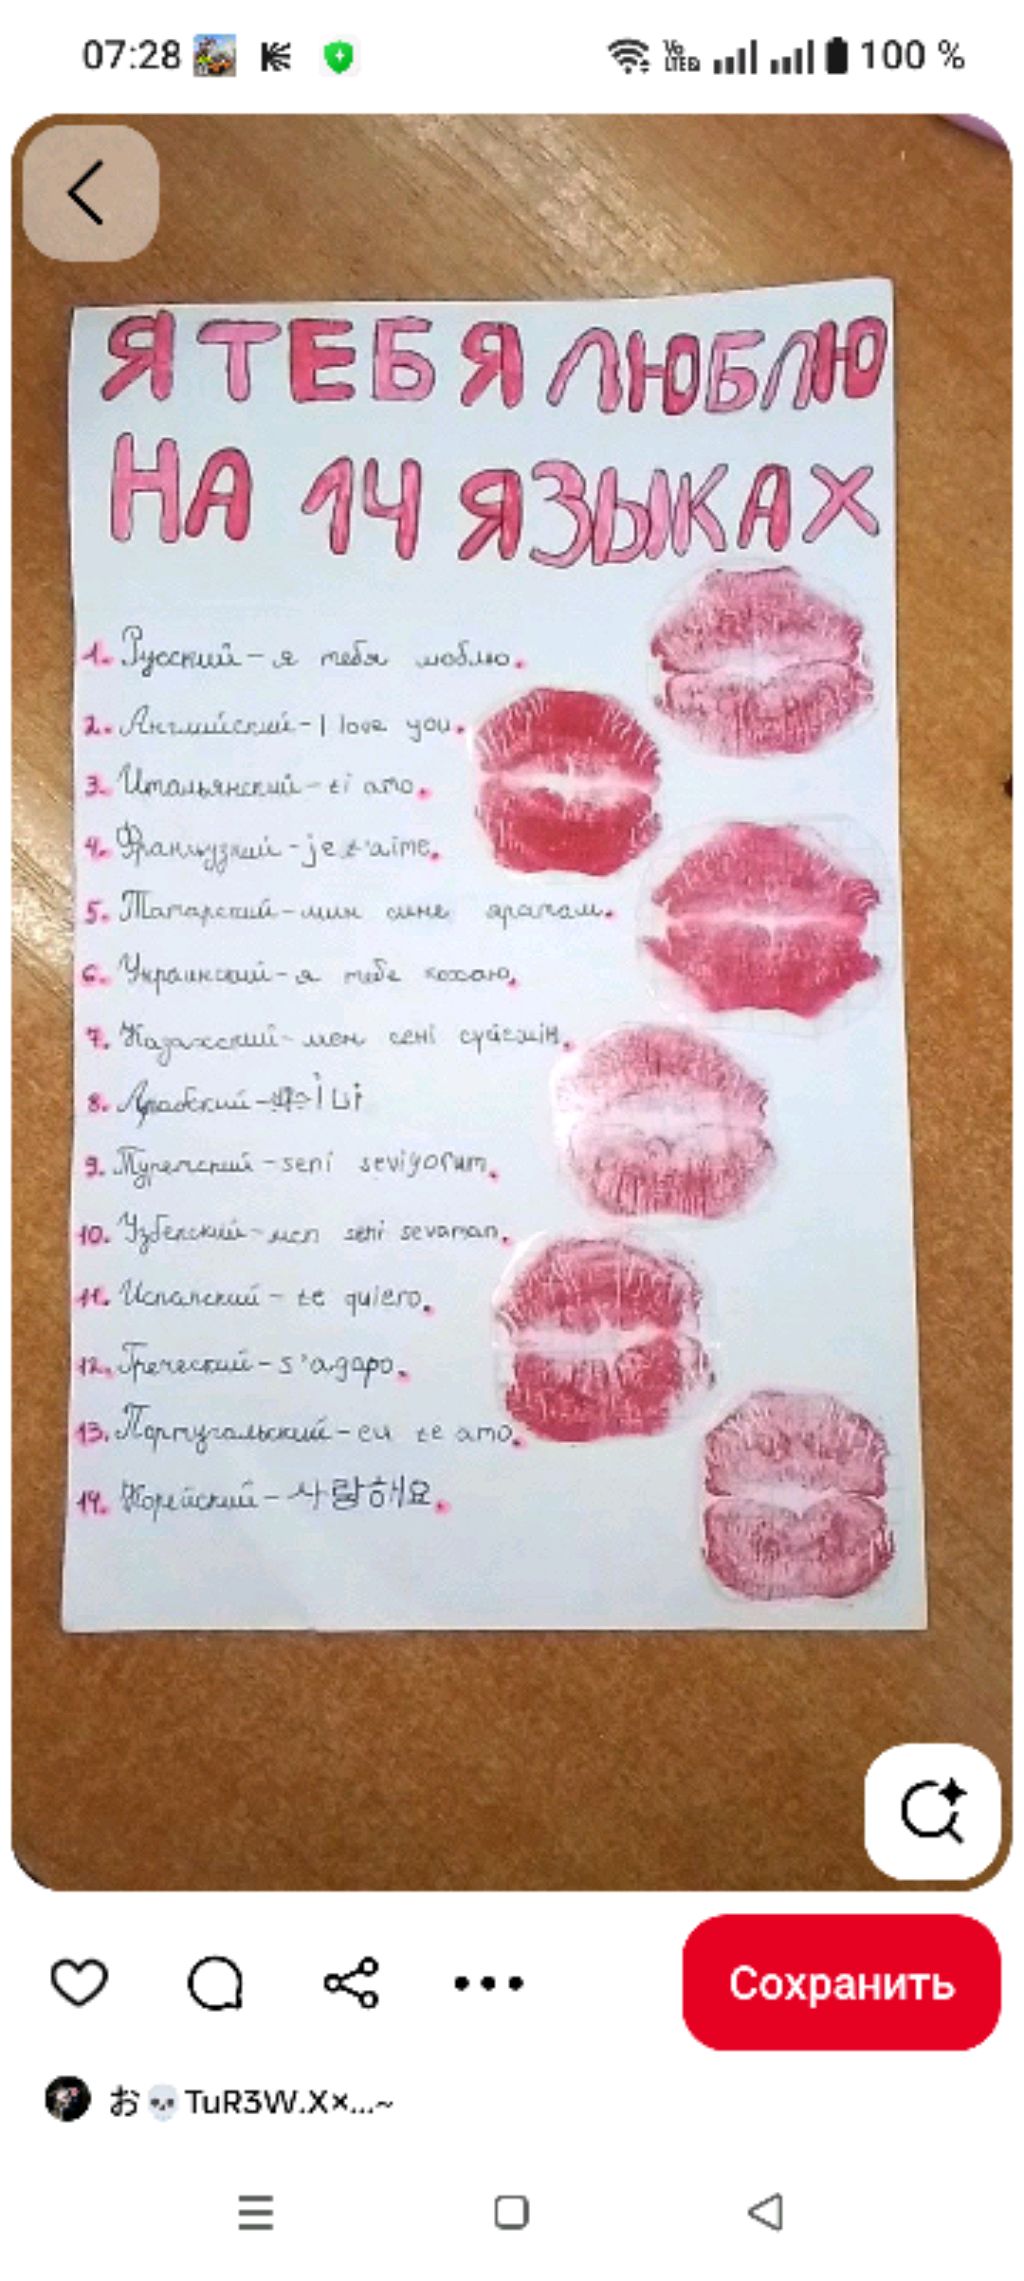 07:28
Vo LTE 100 %
Я ТЕБЯ ЛЮБЛЮ
НА 14 ЯЗЫКАХ
1. Русский - я тебя люблю.
2. Английский - I love you.
3. Итальянский - ti amo.
4. Французкий - je t'aime.
5. Татарский - мин сине яратам.
6. Украинский - я тебе кохаю.
7. Казахский - мен сені сүйемін.
8. Арабский -
9. Турецкий - seni seviyorum.
10. Узбекский - men seni sevaman.
11. Испанский - te quiero.
12. Греческий - s'agapo.
13. Португальский - eu te amo.
14. Корейский - 사랑해요.
Сохранить
お💀TuR3W.X×...~